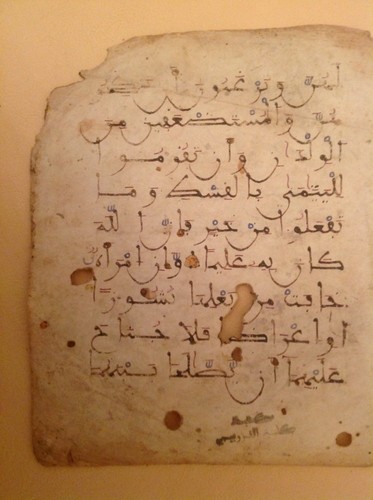 لهن وترغبون أن تنك
حوهن والمستضعفين من
الولدان وأن تقوموا
لليتمى بالقسط وما
تفعلوا من خير فإن الله
كان به عليما وإن امرأة
خافت من بعلها نشوزا
أو اعراضا فلا جناح
عليهما أن يصلحا بينهما